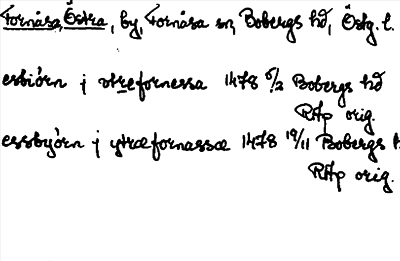 Fornåsa, Östra, by, Fornåsa sn, Bobergs hd, Östg. l.
esbiörn j otrefornessa 1478 6/2 Bobergs hd
RAp orig.
essbyórn j ytræfornassæ 1478 19/11 Bobergs
RAp orig.